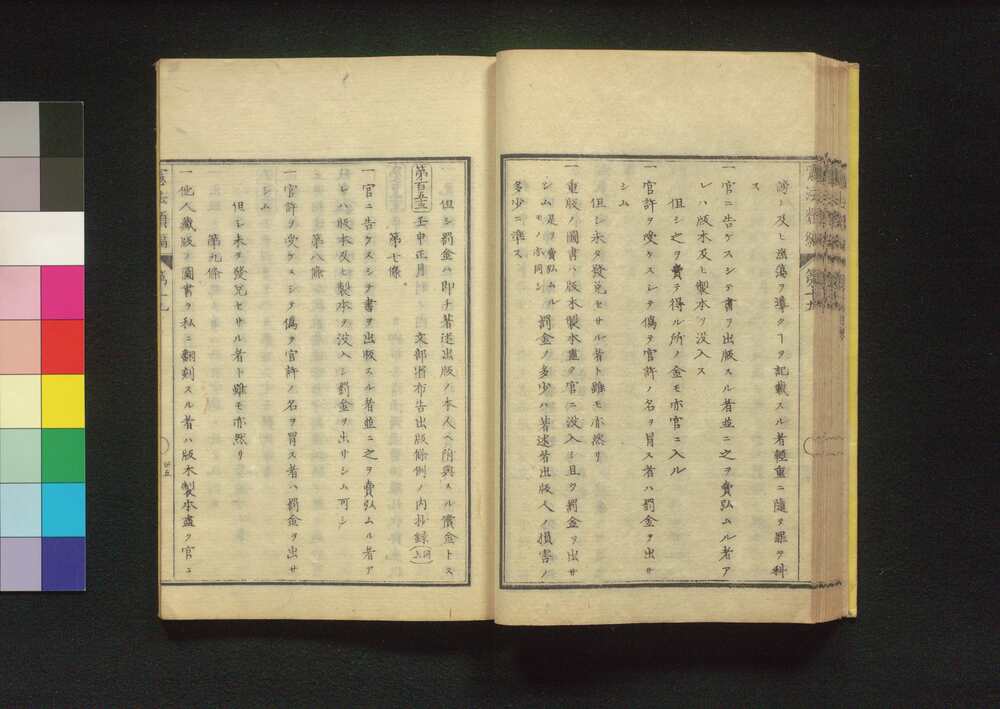 簿シ及ヒ淫蕩ヲ導クヿヲ記載スル者輕重ニ隨ヲ罪ヲ科
ス
一官ニ告ケスシテ書ヲ出版スル者並ニ之ヲ賣弘ムル者ア
レハ版木及ヒ製本ヲ沒入ス
但シ之ヲ賣テ得ル所ノ金モ亦官ニ入ル
一官許ヲ受ケスシテ僞ヲ官許ノ名ヲ冒ス者ハ罰金ヲ出サ
シム
但シ未タ發兌セサル者ト雖モ亦然リ
一重版ノ圖書ハ版木製本盡ク官ニ沒入シ且ク罰金ヲ出サ
シム是ヲ賣弘ムルモノ亦同シ罰金ノ多少ハ著述者出版人ノ損害ノ
多少ニ準ス
但シ罰金ハ即チ著述出版ノ本人ヘ附與スル償金トス
第百五十五 壬申正月 文部省布告出版條例ノ内抄録
第七條
一官ニ告ケスシテ書ヲ出版スル者並ニ之ヲ賣弘ムル者ア
レハ版木及ヒ製本ヲ沒入シ罰金ヲ出サシム可シ
第八條
一官許ヲ受ケスシテ僞ヲ官許ノ名ヲ冒ス者ハ罰金ヲ出サ
シム
但シ未タ發兌セサル者ト雖モ亦然リ
第九條
一他人藏版ノ圖書ヲ私ニ翻刻スル者ハ版木製本盡ク官ニ
憲法類編 第十九